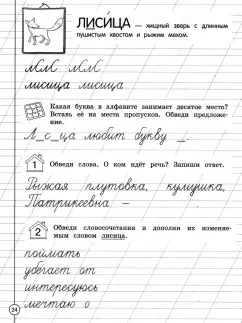 ЛИСИ́ЦА — хищный зверь с длинным
пушистым хвостом и рыжим мехом.
лЛсС лЛсС
лисица лисица
Какая буква в алфавите занимает десятое место?
Вставь её на места пропусков. Обведи предложе-
ние.
Л_с_ца любит букву _.
1 Обведи слова. О ком идёт речь? Запиши ответ.
Рыжая плутовка, кумушка,
Патрикеевна —
2 Обведи словосочетания и дополни их изменяе-
мым словом лисица.
поймать
убегает от
интересуюсь
мечтаю о
24